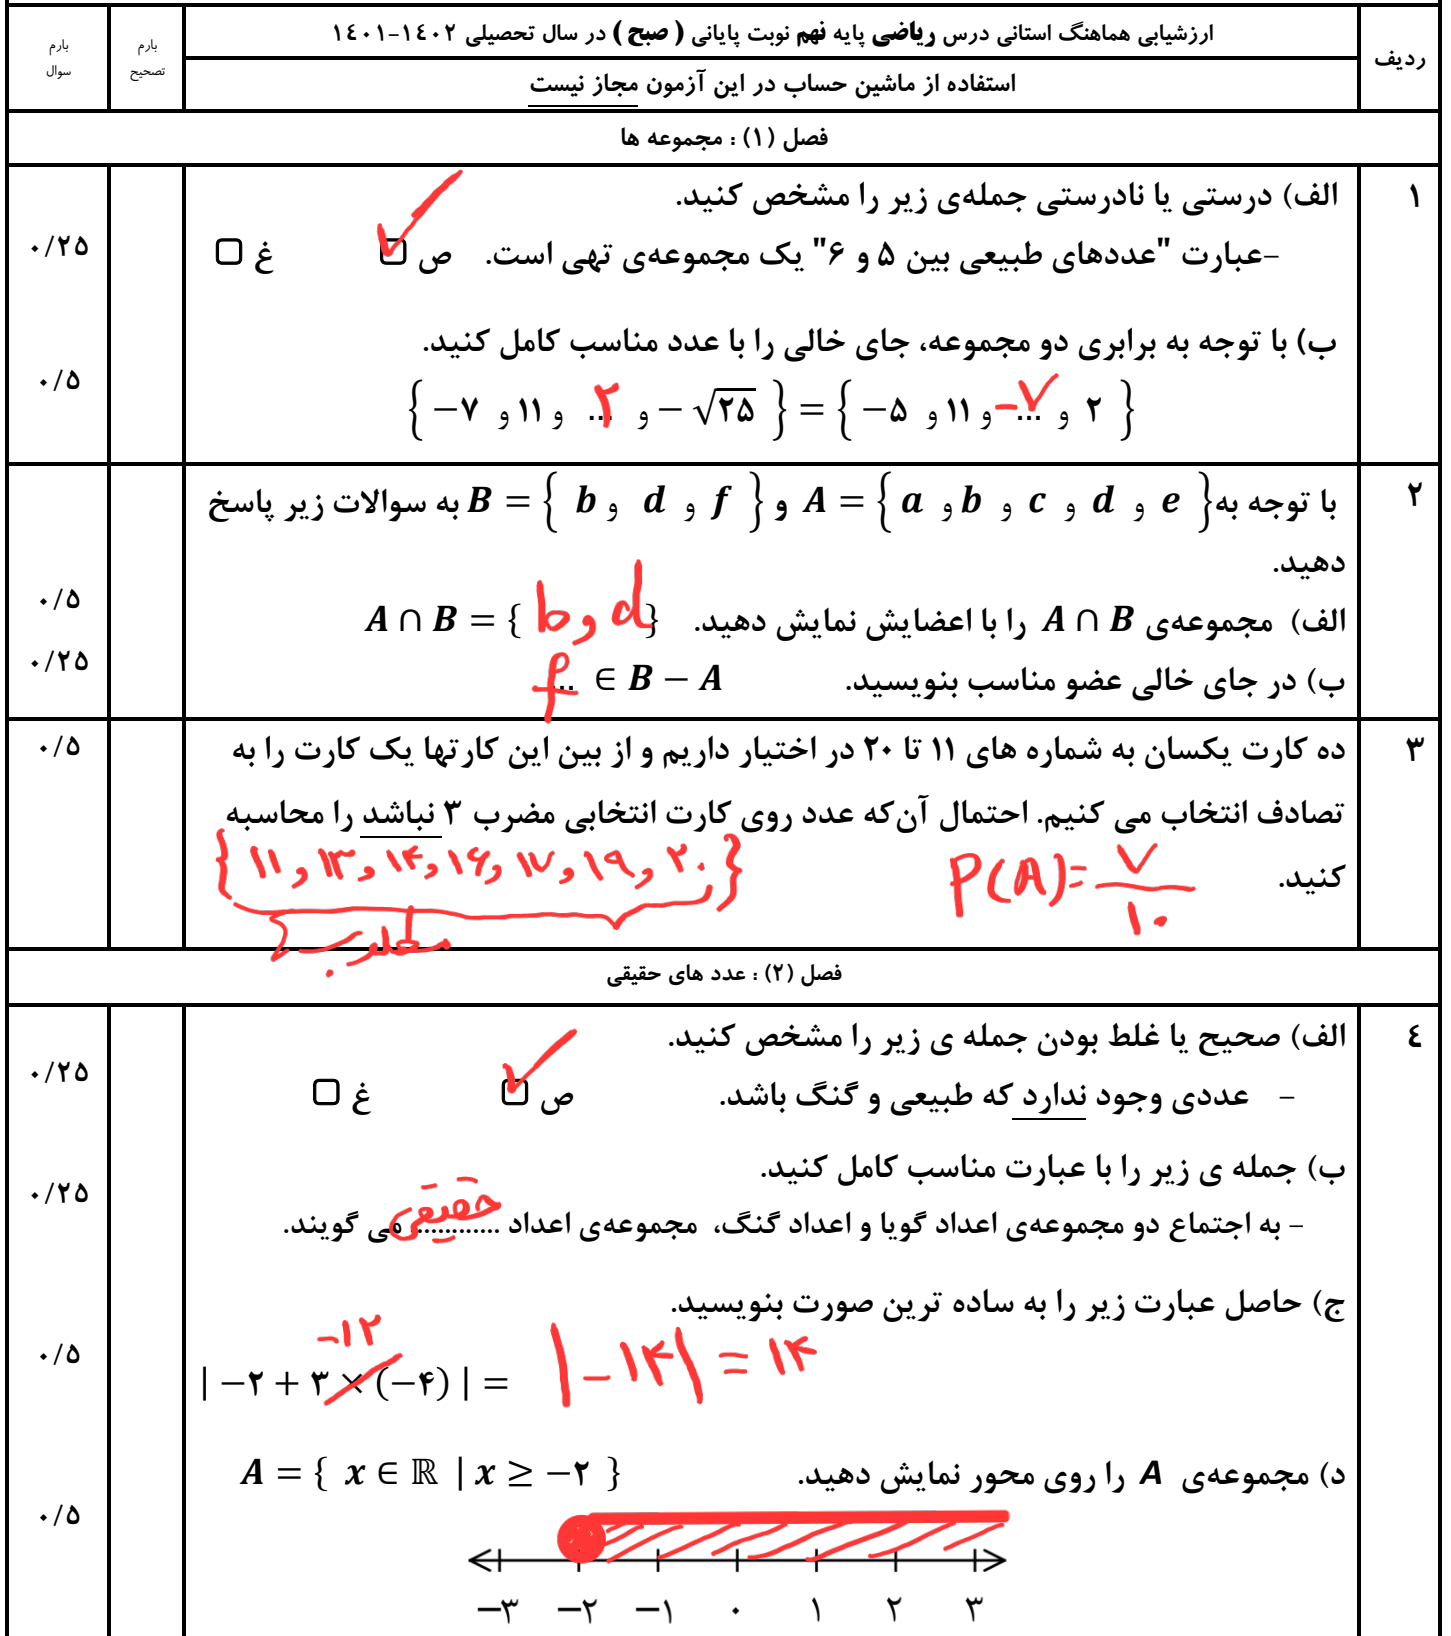 ردیف
ارزشیابی هماهنگ استانی درس ریاضی پایه نهم نوبت پایانی ( صبح ) در سال تحصیلی ١٤٠٢-١٤٠١
استفاده از ماشین حساب در این آزمون مجاز نیست
بارم تصحیح
بارم سوال
فصل (۱) : مجموعه ها
۱
الف) درستی یا نادرستی جمله‌ی زیر را مشخص کنید.
-عبارت "عددهای طبیعی بین ۵ و ۶" یک مجموعه‌ی تهی است. ص ☐ ✓ غ ☐
۰/۲۵
ب) با توجه به برابری دو مجموعه، جای خالی را با عدد مناسب کامل کنید.
{ −۷ و ۱۱ و ... ۲ و −√۲۵ } = { −۵ و ۱۱ و ... −۷ و ۲ }
۰/۵
۲
با توجه به A = { a و b و c و d و e } و B = { b و d و f } به سوالات زیر پاسخ
دهید.
الف) مجموعه‌ی A ∩ B را با اعضایش نمایش دهید. A ∩ B = { b و d }
۰/۵
ب) در جای خالی عضو مناسب بنویسید. ... f ∈ B − A
۰/۲۵
۳
ده کارت یکسان به شماره های ۱۱ تا ۲۰ در اختیار داریم و از بین این کارتها یک کارت را به
۰/۵
تصادف انتخاب می کنیم. احتمال آن‌که عدد روی کارت انتخابی مضرب ۳ نباشد را محاسبه
کنید.
P(A)= ۷/۱۰
{ ۱۱ و ۱۳ و ۱۴ و ۱۶ و ۱۷ و ۱۹ و ۲۰ }
مطلوب
فصل (۲) : عدد های حقیقی
٤
الف) صحیح یا غلط بودن جمله ی زیر را مشخص کنید.
- عددی وجود ندارد که طبیعی و گنگ باشد. ص ☐ ✓ غ ☐
۰/۲۵
ب) جمله ی زیر را با عبارت مناسب کامل کنید.
- به اجتماع دو مجموعه‌ی اعداد گویا و اعداد گنگ، مجموعه‌ی اعداد ............ حقیقی می گویند.
۰/۲۵
ج) حاصل عبارت زیر را به ساده ترین صورت بنویسید.
−۱۲
| −۲ + ۳ × (−۴) | = |−۱۴| = ۱۴
۰/۵
د) مجموعه‌ی A را روی محور نمایش دهید. A = { x ∈ ℝ | x ≥ −۲ }
۰/۵
−۳ −۲ −۱ ۰ ۱ ۲ ۳